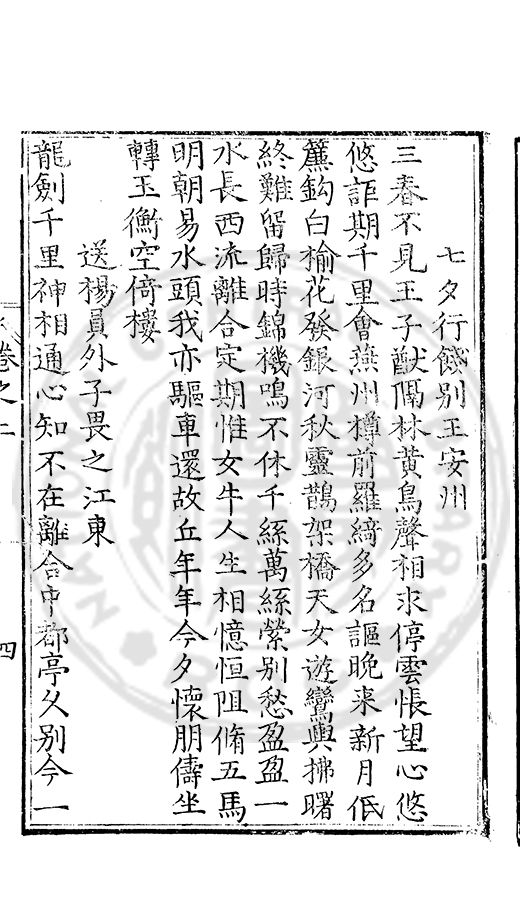 七夕行餞別王安州
三春不見王子猷隔林黃鳥聲相求停雲悵望心悠
悠詎期千里會蕪州樽前羅綺多名謳晚来新月低
簾鈎白榆花發銀河秋靈鵲架橋天女遊鸞輿拂曙
終難留歸時錦機鳴不休千絲萬絲縈別愁盈盈一
水長西流離合定期惟女牛人生相憶恒阻脩五馬
明朝易水頭我亦驅車還故丘年年今夕懷朋儔坐
轉玉衡空倚樓
送楊員外子畏之江東
龍劍千里神相通心知不在離合中都亭久別今一
卷之二
四